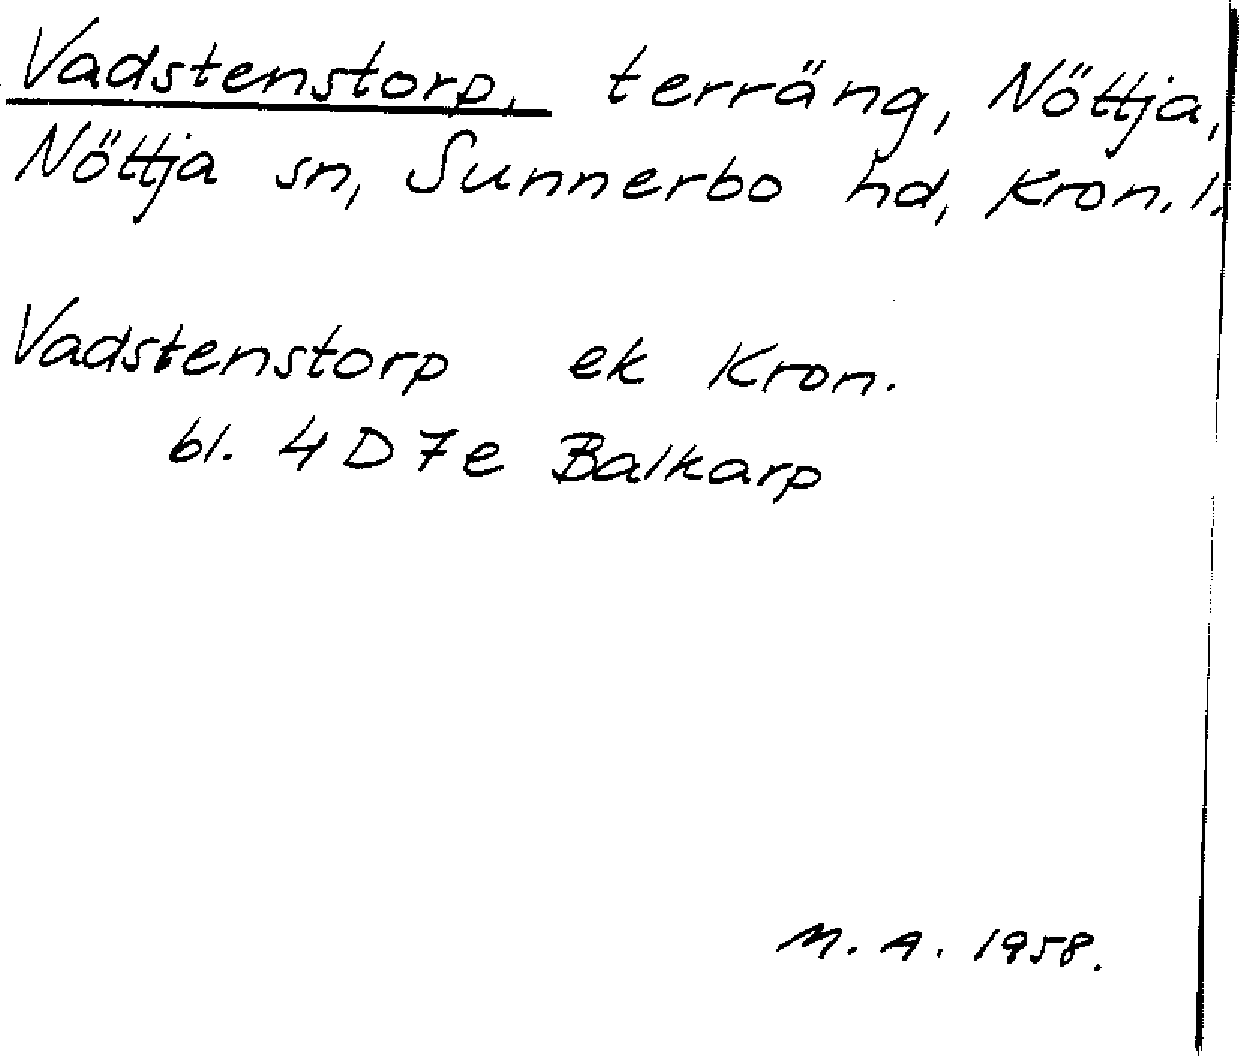 Vadstenstorp, terräng, Nöttja,
Nöttja sn, Sunnerbo hd, Kron. l.
Vadstenstorp ek Kron.
bl. 4D7e Balkarp
M. A. 1958.